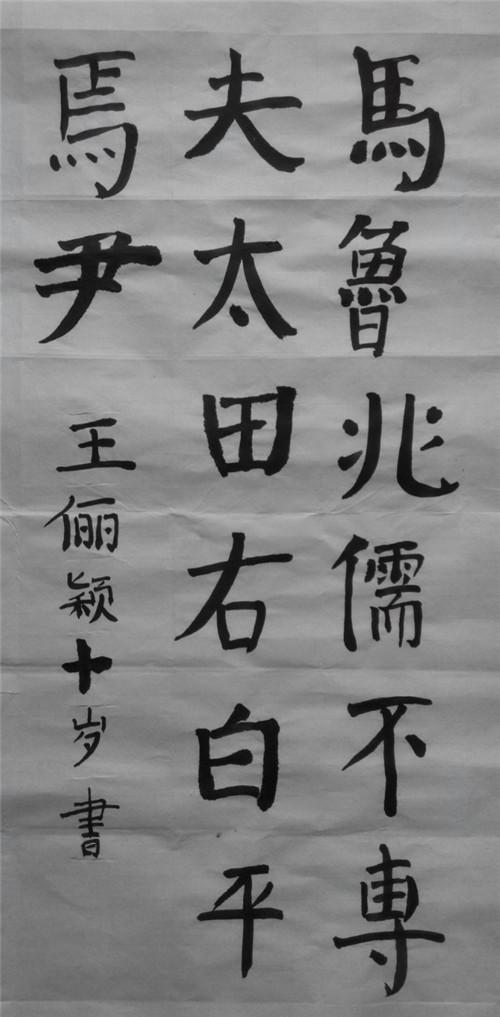 馬魯兆儒不専
夫太田右白平
焉尹
王俪颖十岁書